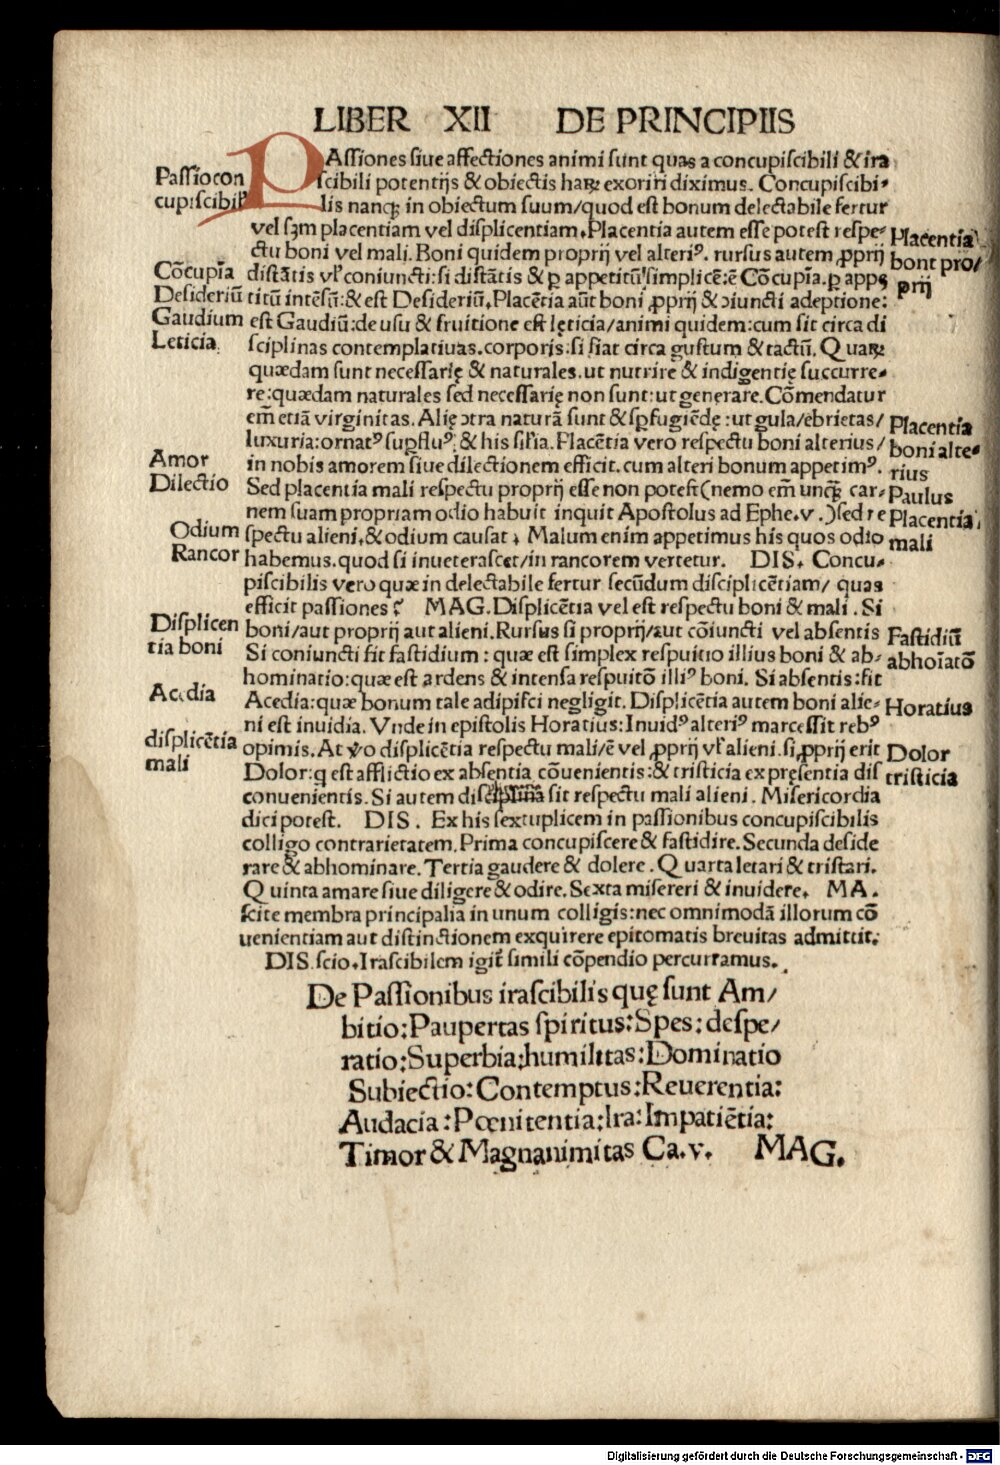 LIBER XII DE PRINCIPIIS
PAſſiones ſiue affectiones animi ſunt quas a concupiſcibili & ira
Paſſio con
ſcibili potentijs & obiectis haꝝ exoriri diximus. Concupiſcibi-
cupiſcibil'
lis nanqꝫ in obiectum ſuum/quod eſt bonum delectabile fertur
vel ſꝫm placentiam vel diſplicentiam.Placentia autem eſſe poteſt reſpe-
Placentia
ctu boni vel mali.Boni quidem proprij vel alteriꝰ. rurſus autem ꝓprij
boni pro/
Cōcupīa
diſtātis vl' coniuncti:ſi diſtātis & ꝑ appetitū ſimplicē:ē Cōcupīa.ꝑ appe
prij
Deſideriū
titū intēſū:& eſt Deſideriū.Placētia aūt boni ꝓprij & ↄiuncti adeptione:
Gaudium
eſt Gaudiū:de uſu & fruitione eſt lęticia/animi quidem:cum ſit circa di
Leticia.
ſciplinas contemplatiuas.corporis:ſi fiat circa guſtum & tactū.Quaꝝ
quædam ſunt neceſſarię & naturales.ut nutrire & indigentię ſuccurre-
re:quædam naturales ſed neceſſarię non ſunt:ut generare.Cōmendatur
em̄ etiā virginitas.Alię ↄtra naturā ſunt & ſꝑ fugiēdę:ut gula/ebrietas/
Placentia
luxuria:ornatꝰ ſuꝑfluꝰ:& his ſil'ia.Placētia vero reſpectu boni alterius/
boni alte-
Amor
in nobis amorem ſiue dilectionem efficit.cum alteri bonum appetimꝰ.
rius
Dilectio
Sed placentia mali reſpectu proprij eſſe non poteſt(nemo em̄ unqꝫ car-
Paulus
nem ſuam propriam odio habuit inquit Apoſtolus ad Ephe.v.)ſed re
Placentia
Odium
ſpectu alieni.& odium cauſat. Malum enim appetimus his quos odio
mali
Rancor
habemus.quod ſi inueteraſcet/in rancorem vertetur. DIS. Concu-
piſcibilis vero quæ in delectabile fertur ſecūdum diſciplicētiam/ quas
efficit paſſiones? MAG.Diſplicētia vel eſt reſpectu boni & mali. Si
Diſplicen
boni/aut proprij aut alieni.Rurſus ſi proprij/aut cōiuncti vel abſentis
Faſtidiū
tia boni
Si coniuncti fit faſtidium: quæ eſt ſimplex reſpuitio illius boni & ab-
abhoīatō
hominatio:quæ eſt ardens & intenſa reſpuitō illiꝰ boni. Si abſentis:fit
Acedia
Acedia:quæ bonum tale adipiſci negligit.Diſplicētia autem boni alie-
Horatius
ni eſt inuidia.Vnde in epiſtolis Horatius:Inuidꝰ alteriꝰ marceſſit rebꝰ
diſplicētia
opimis.At v̊o diſplicētia reſpectu mali/ē vel ꝓprij vl' alieni.ſi ꝓprij erit
Dolor
mali
Dolor:q eſt afflictio ex abſentia cōuenientis:& triſticia ex pręſentia diſ
triſticia
conuenientis.Si autem ſit reſpectu mali alieni. Miſericordia
dici poteſt. DIS. Ex his ſextuplicem in paſſionibus concupiſcibilis
colligo contrarietatem.Prima concupiſcere & faſtidire.Secunda deſide
rare & abhominare.Tertia gaudere & dolere.Quarta letari & triſtari.
Quinta amare ſiue diligere & odire.Sexta miſereri & inuidere. MA.
ſcite membra principalia in unum colligis:nec omnimodā illorum cō
uenientiam aut diſtinctionem exquirere epitomatis breuitas admittit.
DIS.ſcio.Iraſcibilem igit̄ ſimili cōpendio percurramus.
De Paſſionibus iraſcibilis quę ſunt Am/
bitio:Paupertas ſpiritus:Spes:deſpe/
ratio:Superbia:humilitas:Dominatio
Subiectio:Contemptus:Reuerentia:
Audacia:Pœnitentia:Ira:Impatiētia:
Timor & Magnanimitas Ca.v. MAG.
Digitalisierung gefördert durch die Deutsche Forschungsgemeinschaft - DFG